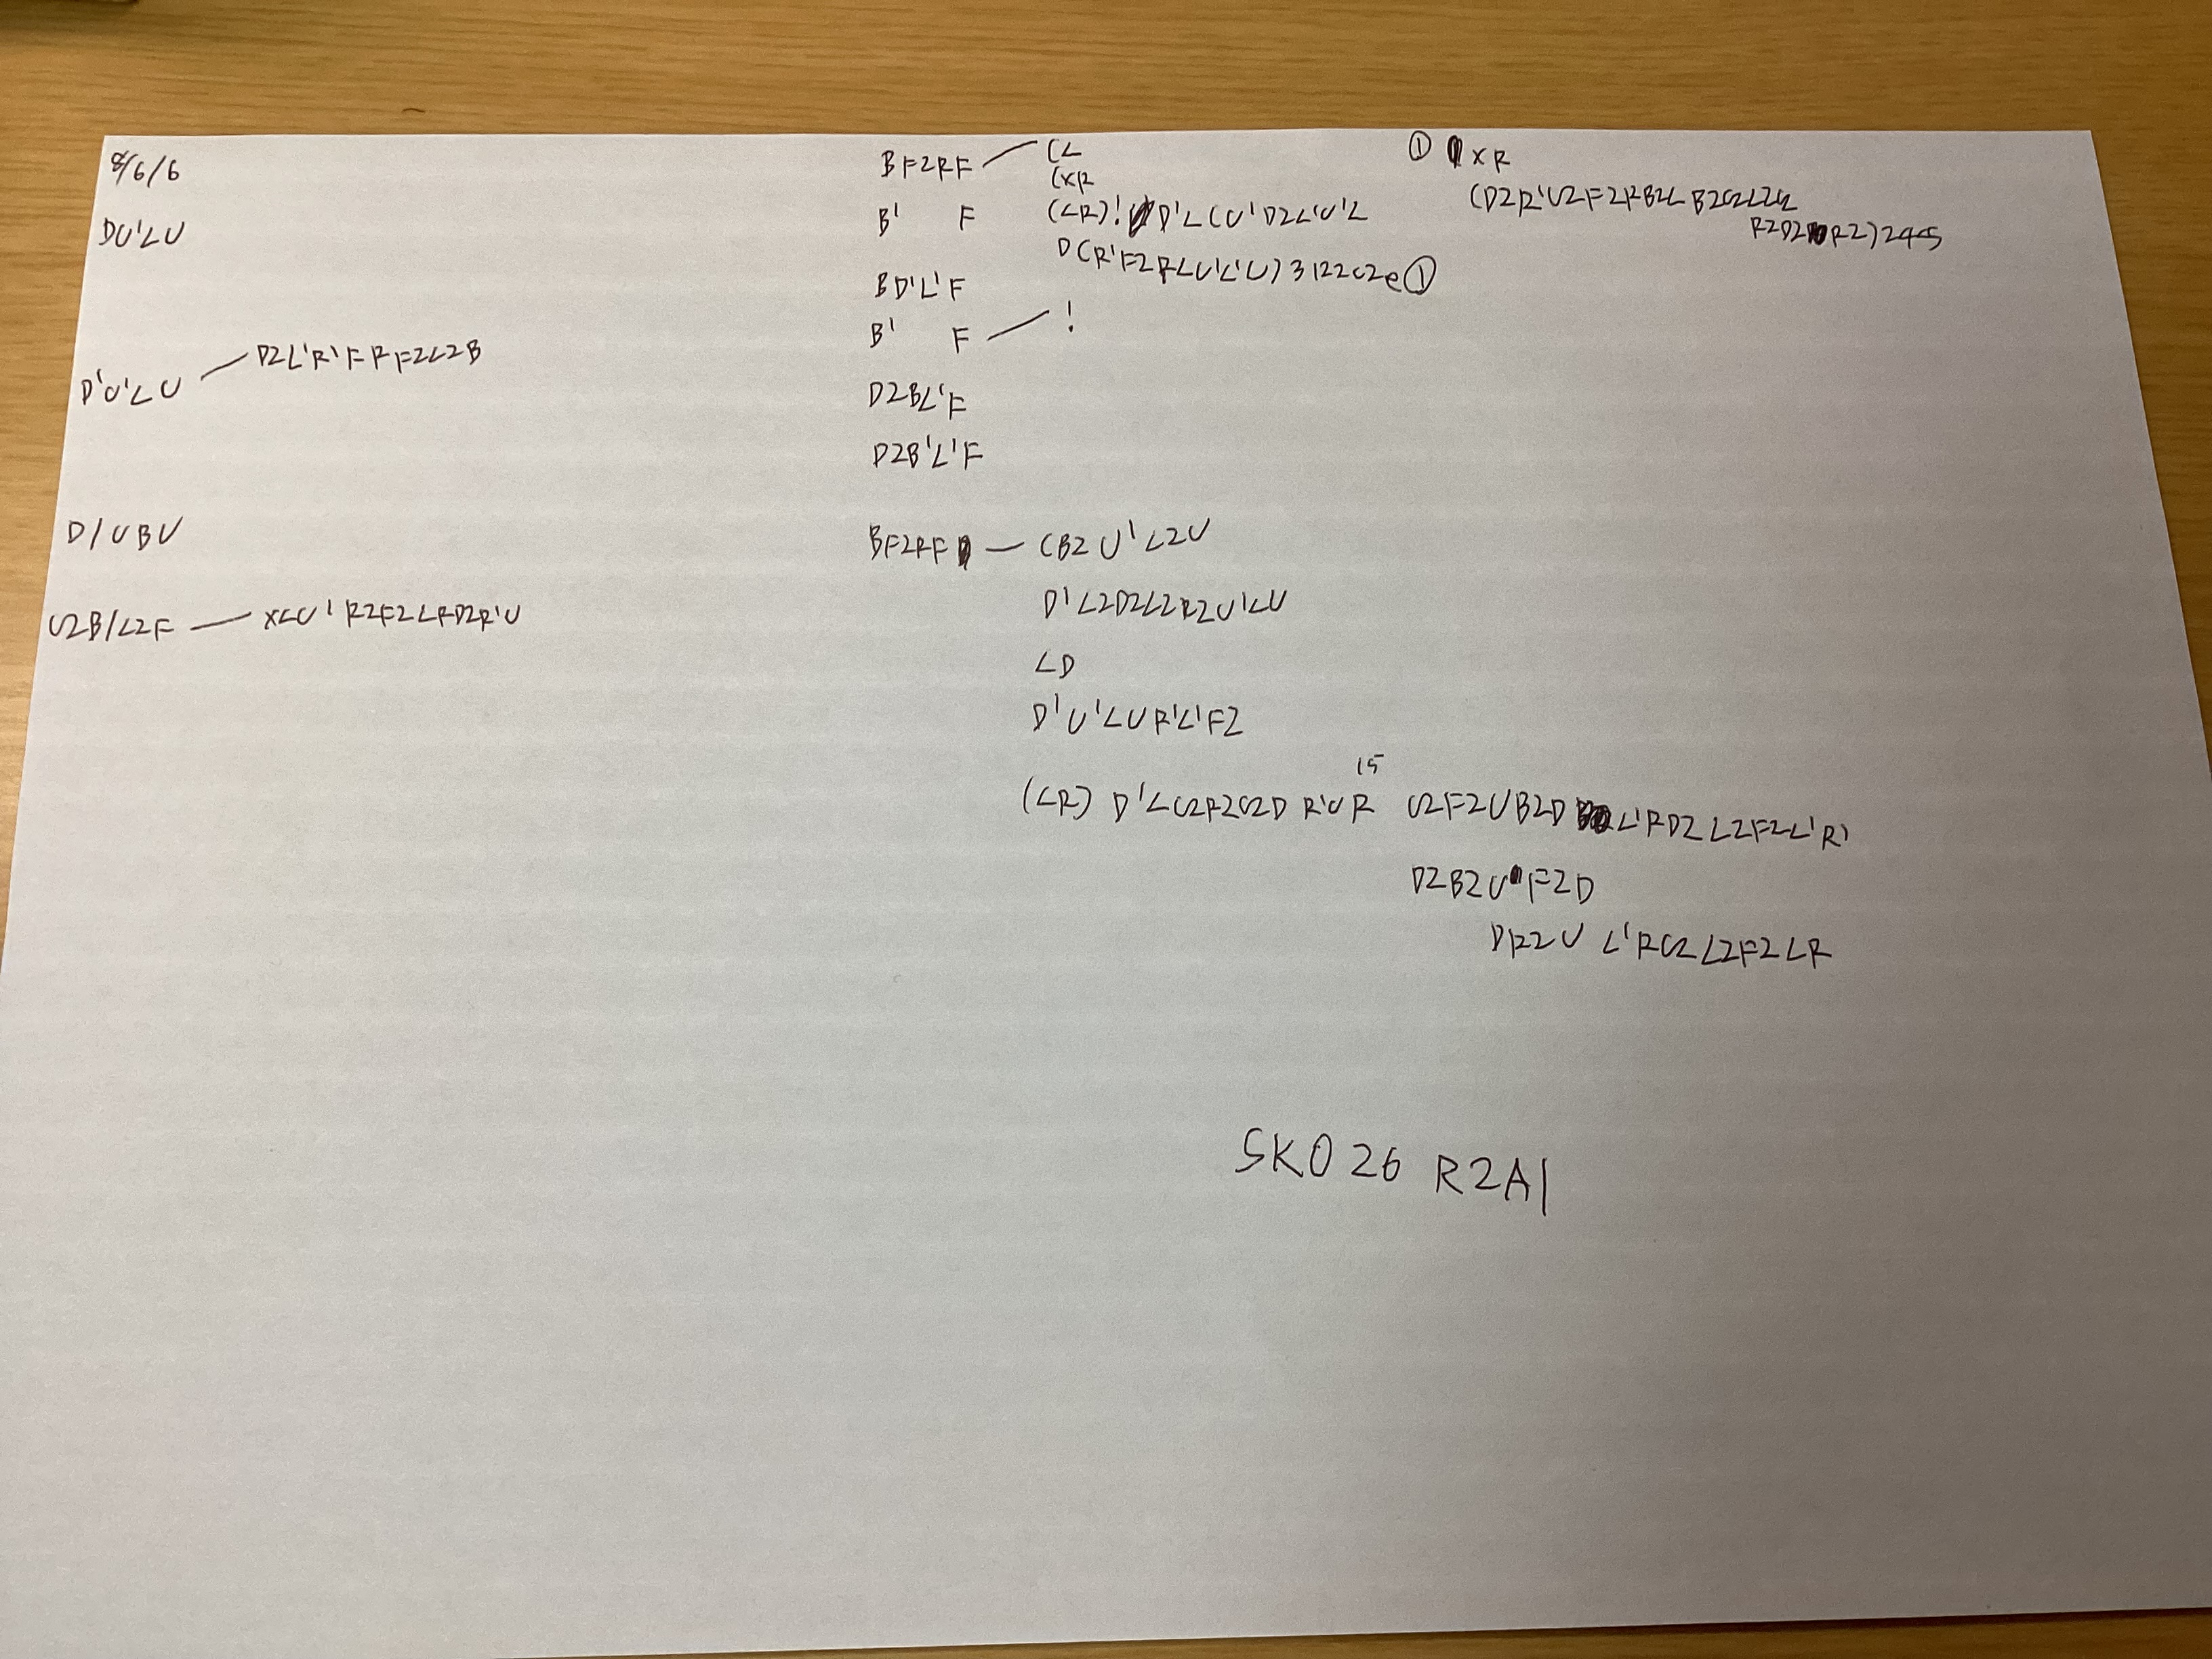 8/6/6
DU'LU
D'U'LU D2L'R'FRF2L2B
D/UBU
U2B/L2F XLU'R2F2LRD2R'U
BF2RF (L
(XR
B' F (LR)! D'L(U'D2L'U'L
D(R'F2RLU'L'U)3 122c2e①
BD'L'F
B' F !
D2BL'F
D2B'L'F
BF2RF (B2U'L2U
D'L2D2L2R2U'LU
LD
D'U'LUR'L'F2
15
(LR) D'LU2R2U2D R'UR U2F2UB2D L'RD2L2F2L'R'
D2B2U F2D
DR2U L'RU2L2F2LR
① XR
(D2R'U2F2RB2L B2U2L2U2
R2D2 R2)24-5
SKO26 R2A1